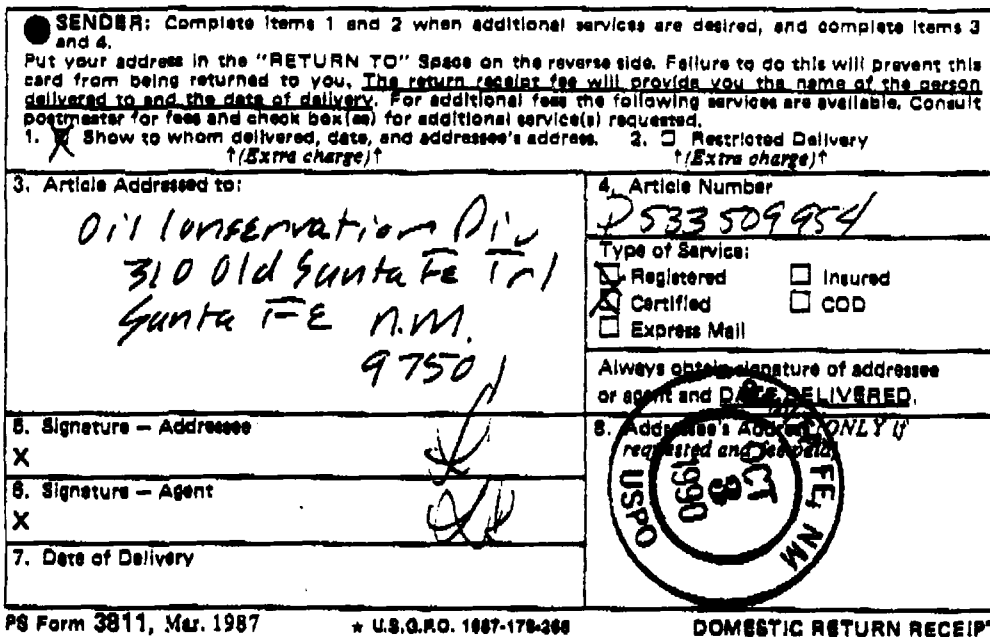 SENDER: Complete items 1 and 2 when additional services are desired, and complete items 3
and 4.
Put your address in the "RETURN TO" Space on the reverse side. Failure to do this will prevent this
card from being returned to you. The return receipt fee will provide you the name of the person
delivered to and the date of delivery. For additional fees the following services are available. Consult
postmaster for fees and check box(es) for additional service(s) requested.
1. X Show to whom delivered, date, and addressee's address. 2. ☐ Restricted Delivery
↑(Extra charge)↑ ↑(Extra charge)↑
3. Article Addressed to:
Oil Conservation Div
310 Old Santa Fe Trl
Santa FE n.m.
97501
4. Article Number
P533509954
Type of Service:
☒ Registered ☐ Insured
☒ Certified ☐ COD
☐ Express Mail
Always obtain signature of addressee
or agent and DATE DELIVERED.
5. Signature — Addressee
X
6. Signature — Agent
X
7. Date of Delivery
8. Addressee's Address (ONLY if
requested and fee paid)
FE, NM
OCT
1990
USPO
PS Form 3811, Mar. 1987 ★ U.S.G.P.O. 1987-178-268 DOMESTIC RETURN RECEIPT